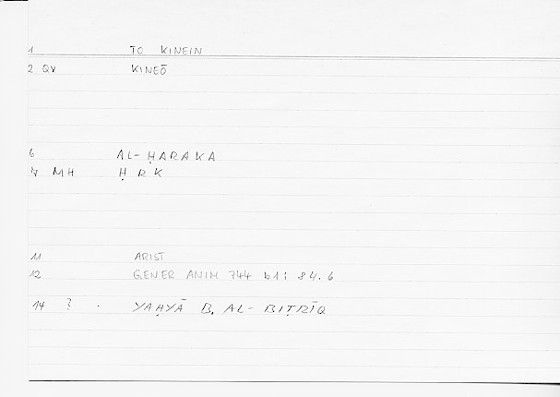 1 TO KINEIN
2 QV KINEŌ
6 AL-ḤARAKA
7 MH ḤRK
11 ARIST
12 GENER ANIM 744 b1; 84.6
14 ? . YAḤYĀ B. AL-BIṬRĪQ